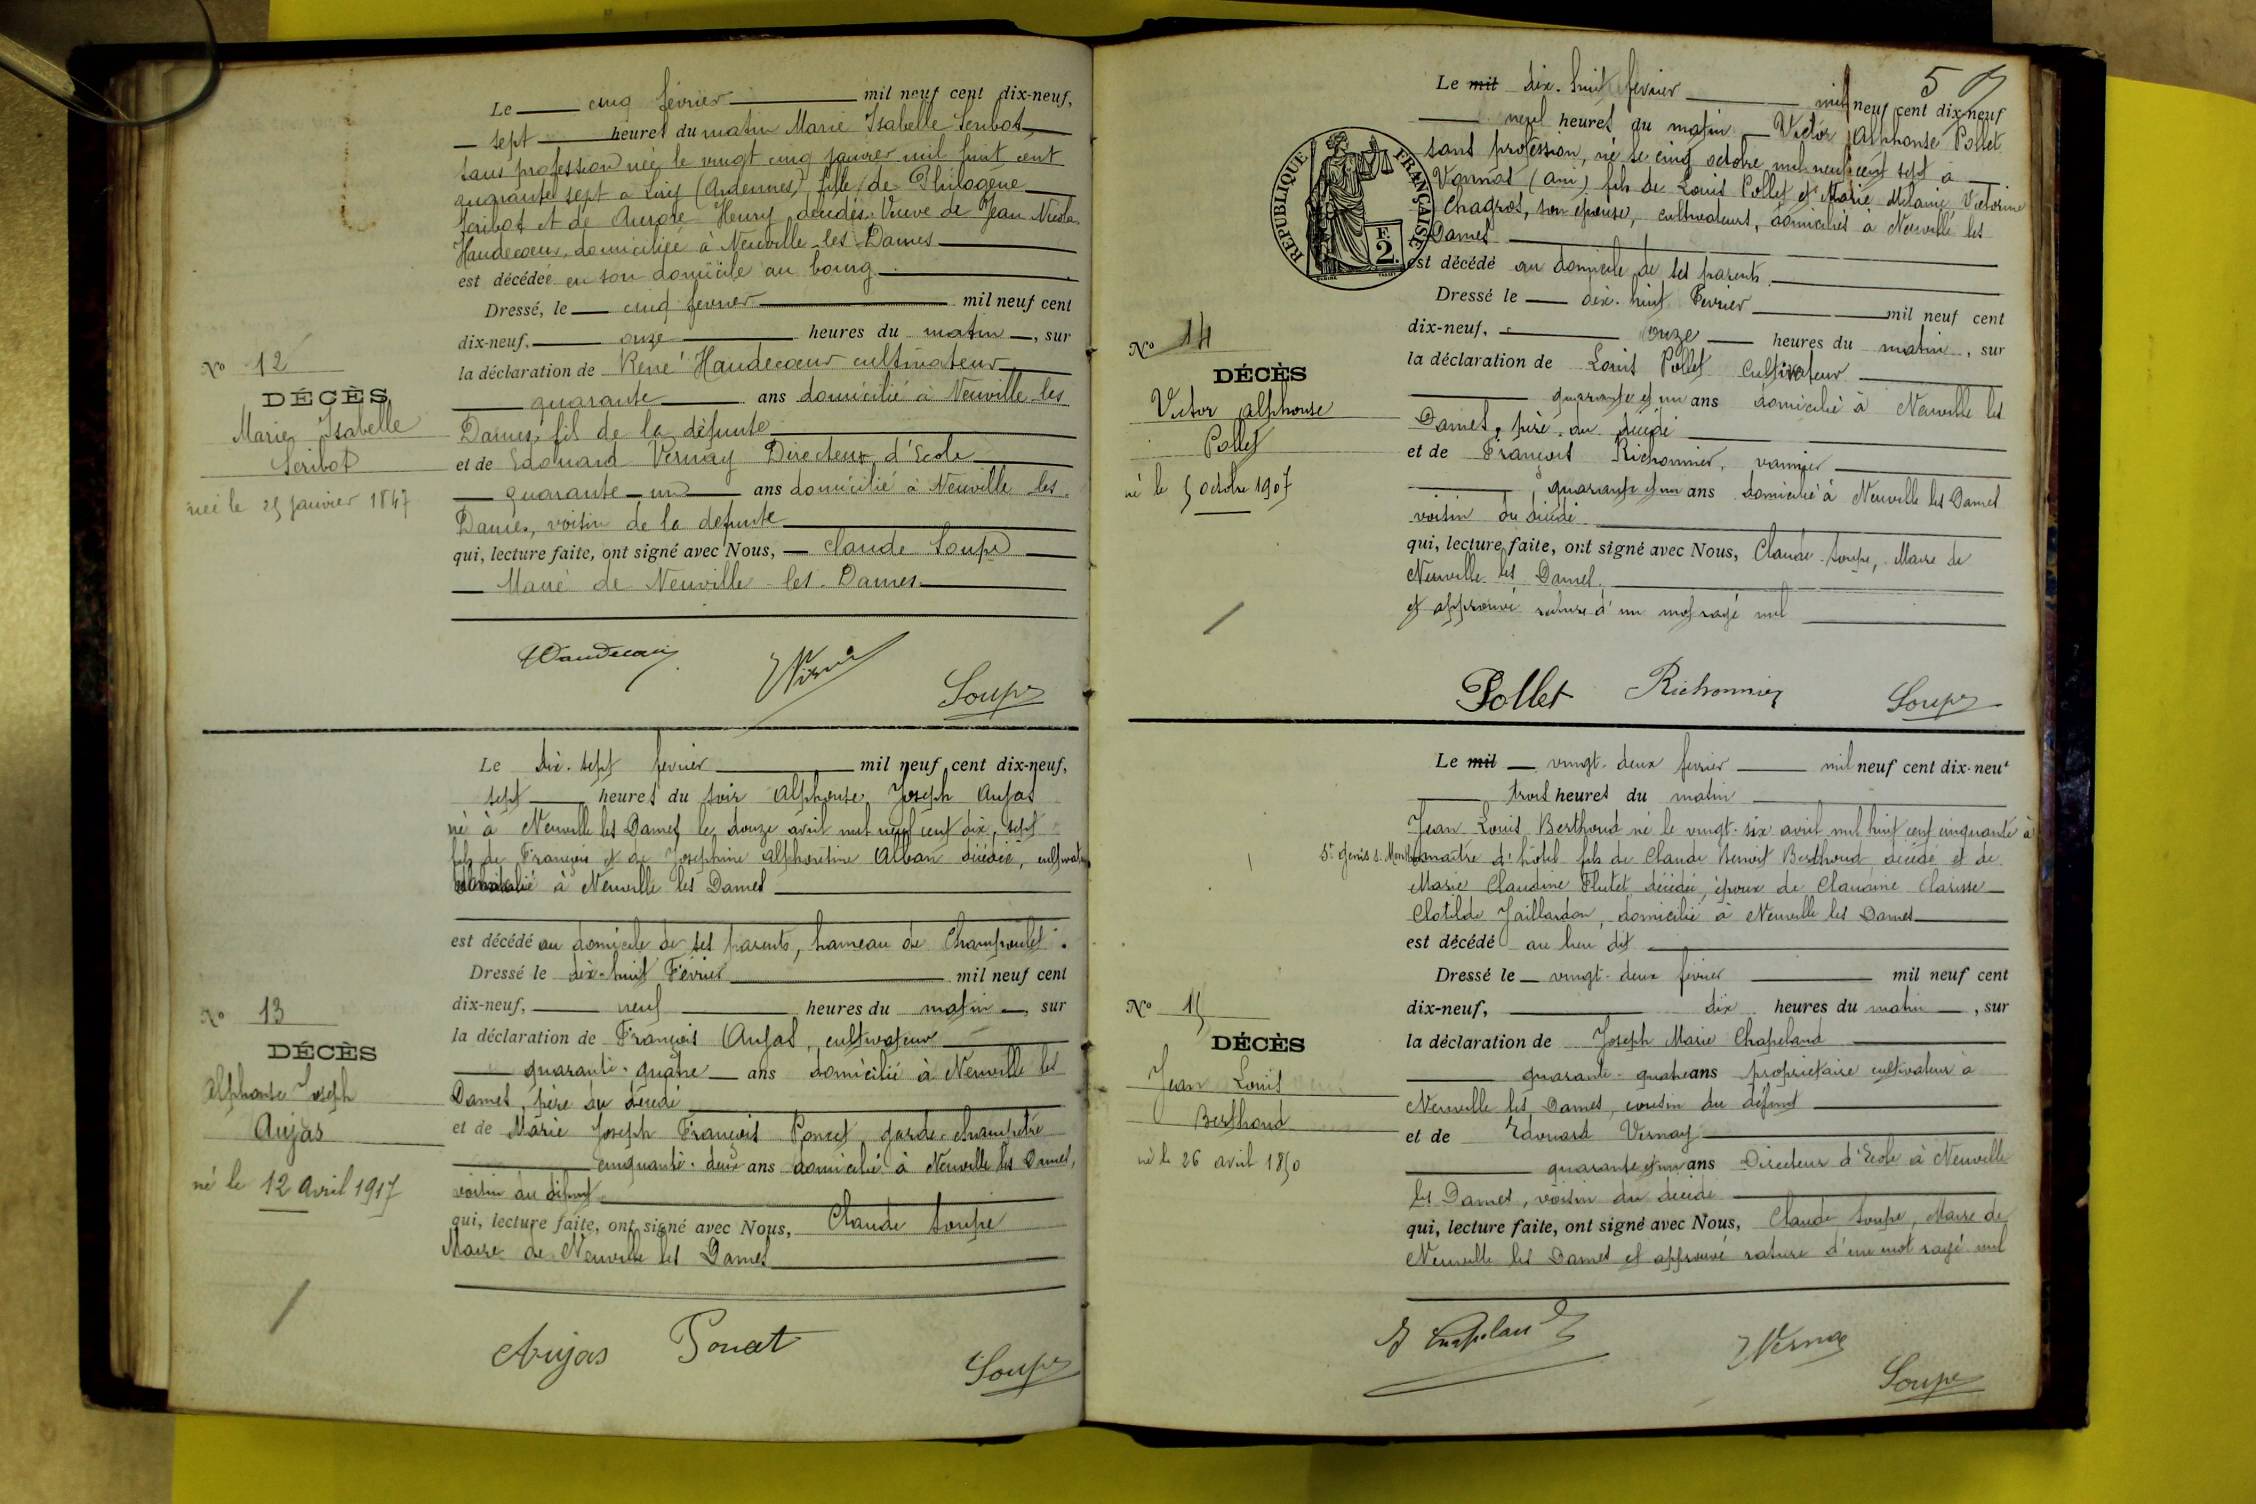 Le cinq février mil neuf cent dix-neuf,
sept heures du matin Marie Isabelle Scribot
sans profession née le vingt cinq janvier mil huit cent
quarante sept à Liry (Ardennes), fille de Philogène
Scribot et de Aurore Henry décédés. Veuve de Jean Nicolas
Haudecœur, domiciliée à Neuville-les-Dames
est décédée en son domicile au bourg
Dressé, le cinq février mil neuf cent
dix-neuf, onze heures du matin, sur
la déclaration de René Haudecœur cultivateur
quarante ans domicilié à Neuville les
Dames, fils de la défunte
et de Edouard Vernay Directeur d'Ecole
quarante-un ans domicilié à Neuville les
Dames, voisin de la défunte
qui, lecture faite, ont signé avec Nous, Claude Soupe
Maire de Neuville-les-Dames
No 12
DÉCÈS
Marie Isabelle
Scribot
née le 25 janvier 1847
Soupe
Le dix-sept février mil neuf cent dix-neuf,
sept heures du soir Alphonse Joseph Aujas
né à Neuville les Dames le douze avril mil neuf cent dix-sept
fils de François et de Joséphine Alphonsine Alban décédée, cultivateur
à Neuville les Dames
est décédé au domicile de ses parents, hameau de Champoulet.
Dressé le dix-huit Février mil neuf cent
dix-neuf, neuf heures du matin, sur
la déclaration de François Aujas, cultivateur
quarante-quatre ans domicilié à Neuville les
Dames, père du décédé
et de Marie Joseph François Poncet, garde-champêtre
cinquante-deux ans domicilié à Neuville les Dames,
voisin du défunt
qui, lecture faite, ont signé avec Nous, Claude Soupe
Maire de Neuville les Dames
No 13
DÉCÈS
Alphonse Joseph
Aujas
né le 12 Avril 1917
Aujas Poncet Soupe
5
Le mil dix-huit février mil neuf cent dix-neuf
neuf heures du matin Victor Alphonse Pollet
sans profession, né le cinq octobre mil neuf cent sept à
Vonnas (Ain) fils de Louis Pollet et Marie Mélanie Victorine
Chagros, son épouse, cultivateurs, domiciliés à Neuville les
Dames
est décédé au domicile de ses parents
Dressé le dix-huit Février mil neuf cent
dix-neuf, onze heures du matin, sur
la déclaration de Louis Pollet cultivateur
quarante et un ans domicilié à Neuville les
Dames, père du décédé
et de François Richonnier, vannier
quarante et un ans domicilié à Neuville les Dames
voisin du décédé
qui, lecture faite, ont signé avec Nous, Claude Soupe, Maire de
Neuville les Dames
et approuvé rature d'un mot rayé nul
RÉPUBLIQUE FRANÇAISE
F.
2.
No 14
DÉCÈS
Victor Alphonse
Pollet
né le 5 octobre 1907
Pollet Richonnier Soupe
Le mil vingt-deux février mil neuf cent dix-neuf
trois heures du matin
Jean Louis Berthoud né le vingt-six avril mil huit cent cinquante à
St Genis s. Menthon maître d'hôtel fils de Claude Benoit Berthoud décédé et de
Marie Claudine Flutet décédée, époux de Claudine Clarisse
Clotilde Jaillardon, domicilié à Neuville les Dames
est décédé au lieu dit
Dressé le vingt-deux février mil neuf cent
dix-neuf, dix heures du matin, sur
la déclaration de Joseph Marie Chapeland
quarante-quatre ans propriétaire cultivateur à
Neuville les Dames, cousin du défunt
et de Edouard Vernay
quarante et un ans Directeur d'Ecole à Neuville
les Dames, voisin du décédé
qui, lecture faite, ont signé avec Nous, Claude Soupe, Maire de
Neuville les Dames et approuvé rature d'un mot rayé nul
No 15
DÉCÈS
Jean Louis
Berthoud
né le 26 avril 1850
Chapeland Vernay
Soupe